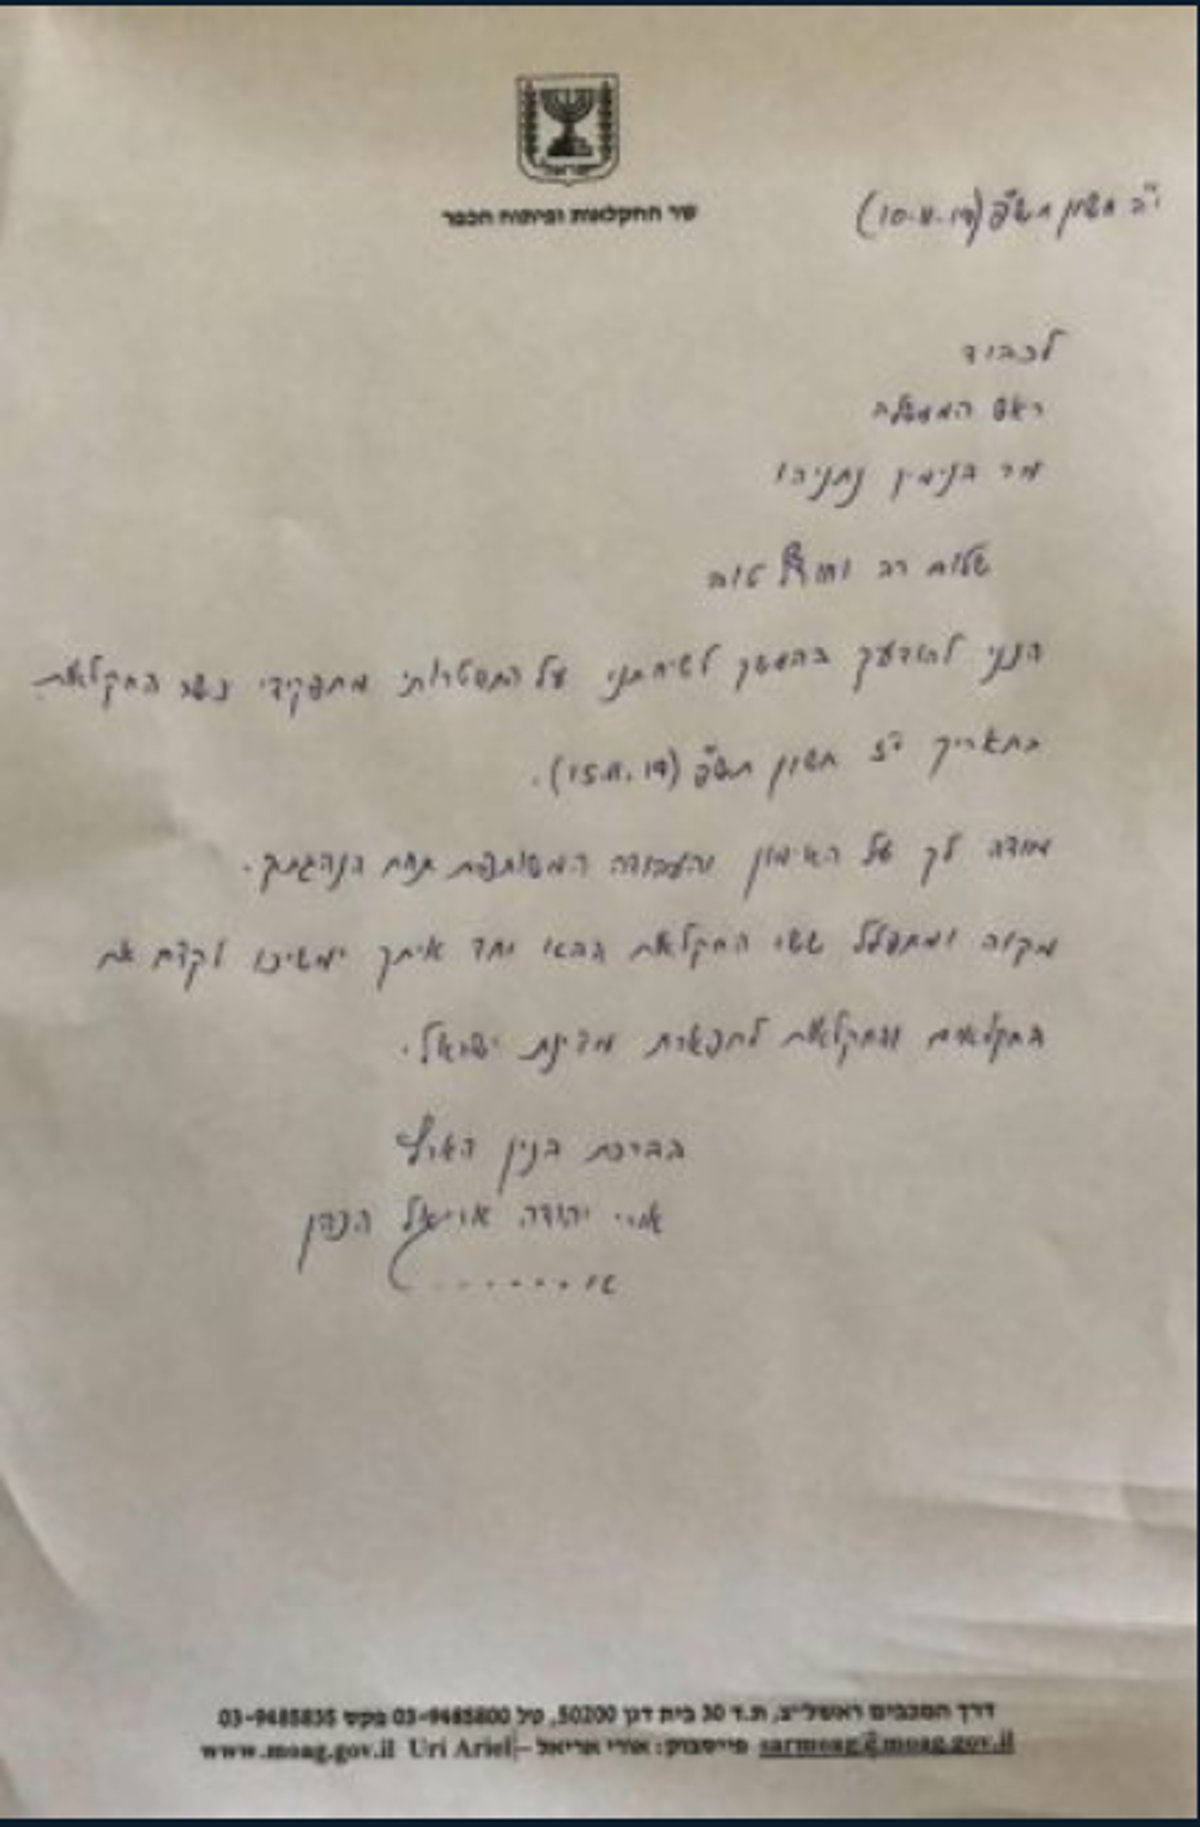 שר החקלאות ופיתוח הכפר
י"ב חשון תש"פ (10.11.19)
לכבוד
ראש הממשלה
מר בנימין נתניהו
שלום רב וחודש טוב
הנני להודיעך בהמשך לשיחתנו על התפטרותי מתפקידי כשר החקלאות
בתאריך י"ז חשון תש"פ (15.11.19).
מודה לך על האימון והעבודה המשותפת תחת הנהגתך.
מקוה ומתפלל ששר החקלאות הבא יחד איתך ימשיכו לקדם את
החקלאים והחקלאות לתפארת מדינת ישראל.
בברכת בנין הארץ
אורי יהודה אריאל הכהן
דרך המכבים ראשל"צ, ת.ד 30 בית דגן 50200, טל 03-9485800 פקס 03-9485835
sarmoag@moag.gov.il פייסבוק: אורי אריאל – Uri Ariel www.moag.gov.il